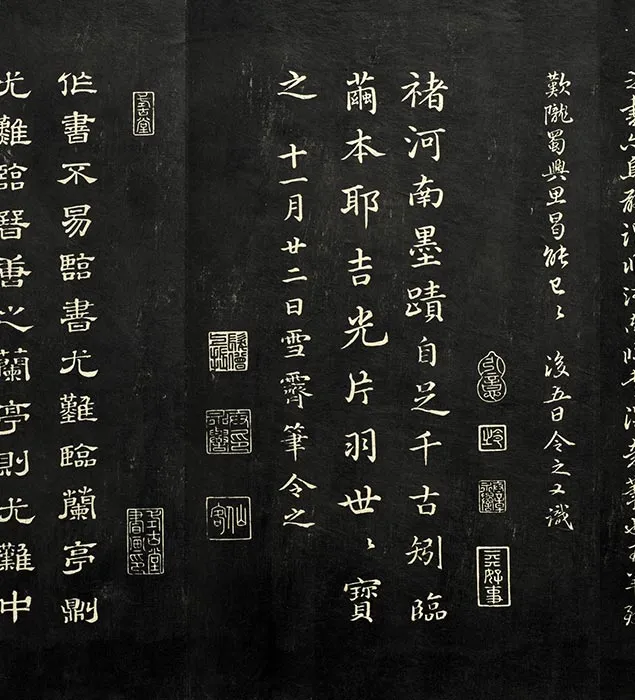 歎隴蜀興曷能已〻 後五日令之又識
褚河南墨蹟自足千古矧臨
繭本耶吉光片羽世〻寶
之 十一月廿二日雪霽筆令之
仙客
式古堂
式古堂書畫印
作書不易臨書尤難臨蘭亭則
尤難臨晉唐之蘭亭則尤難中